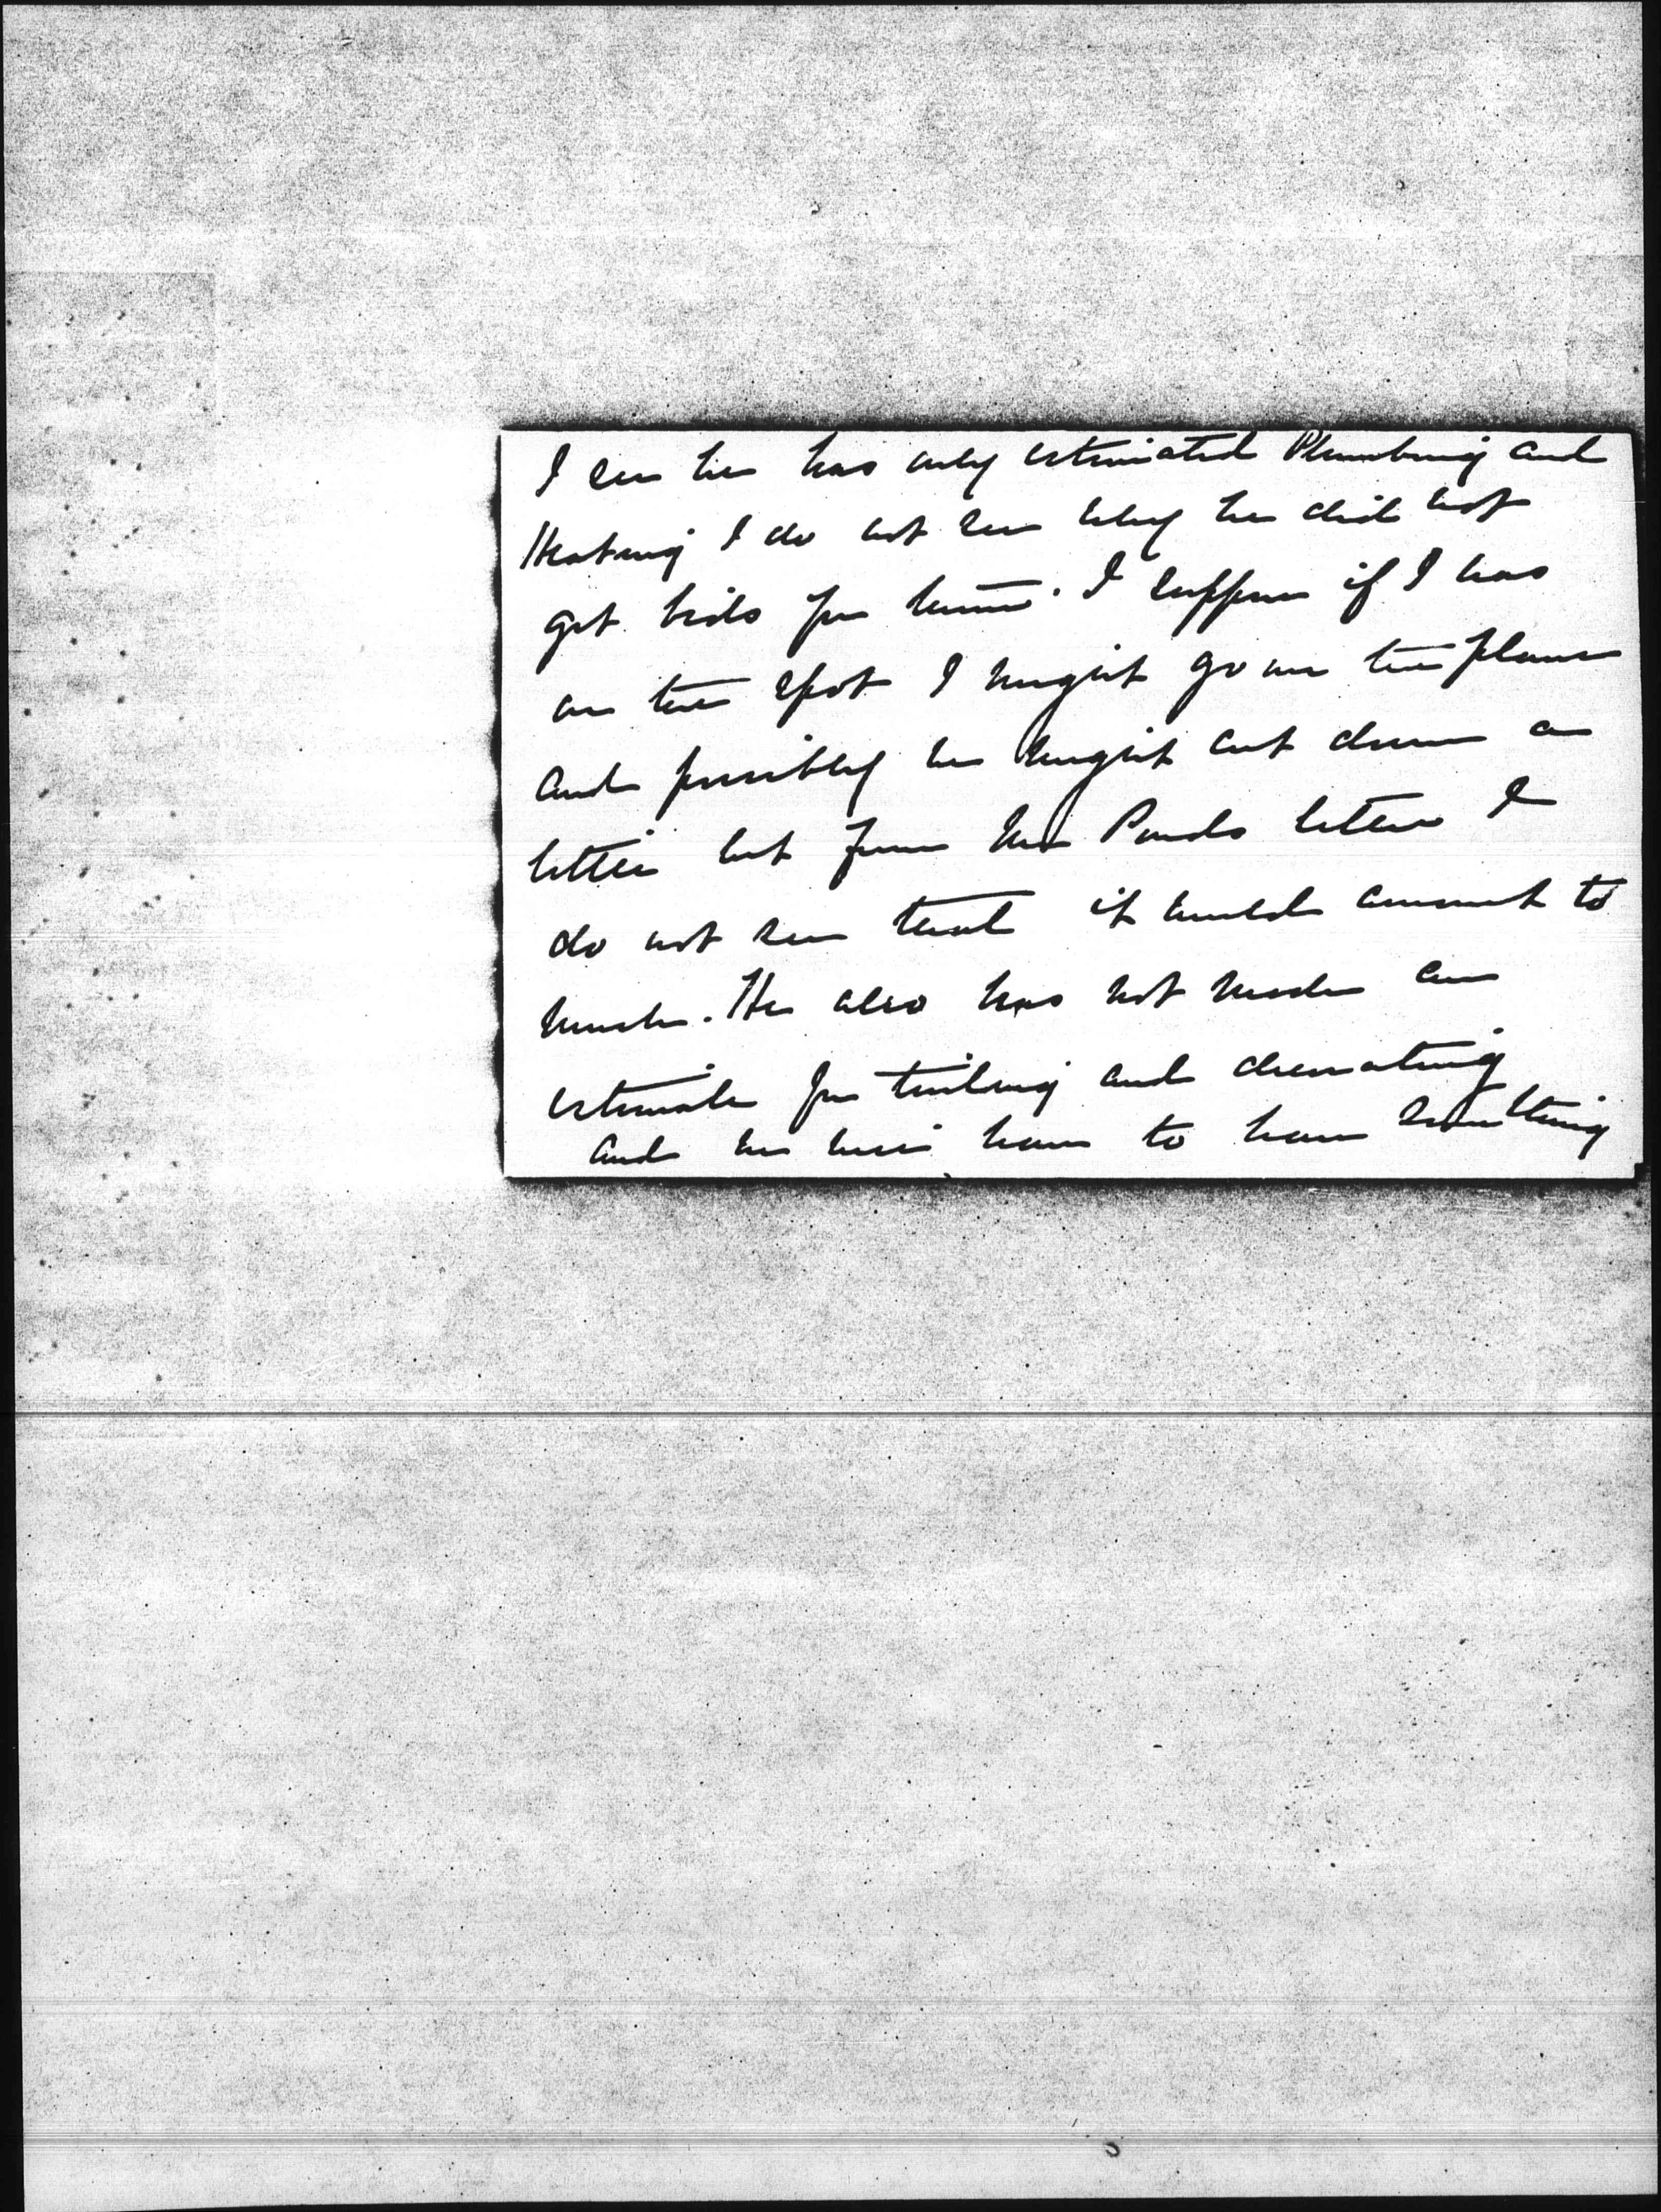 I see he has only estimated Plumbing and
Heating I do not see why he did not
get bids for them. I suppose if I was
on the spot I might go over the plans
and possibly we might cut down a
little but from Mr Ponds letter I
do not see that it would amount to
much. He also has not made an
estimate for tinting and decorating
and we will have to have something